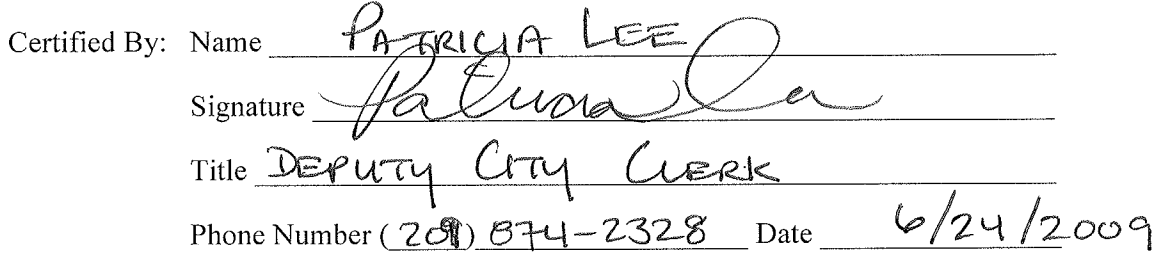 Certified By: Name PATRICIA LEE
Signature Patricia Lee
Title DEPUTY CITY CLERK
Phone Number (209) 874-2328 Date 6/24/2009